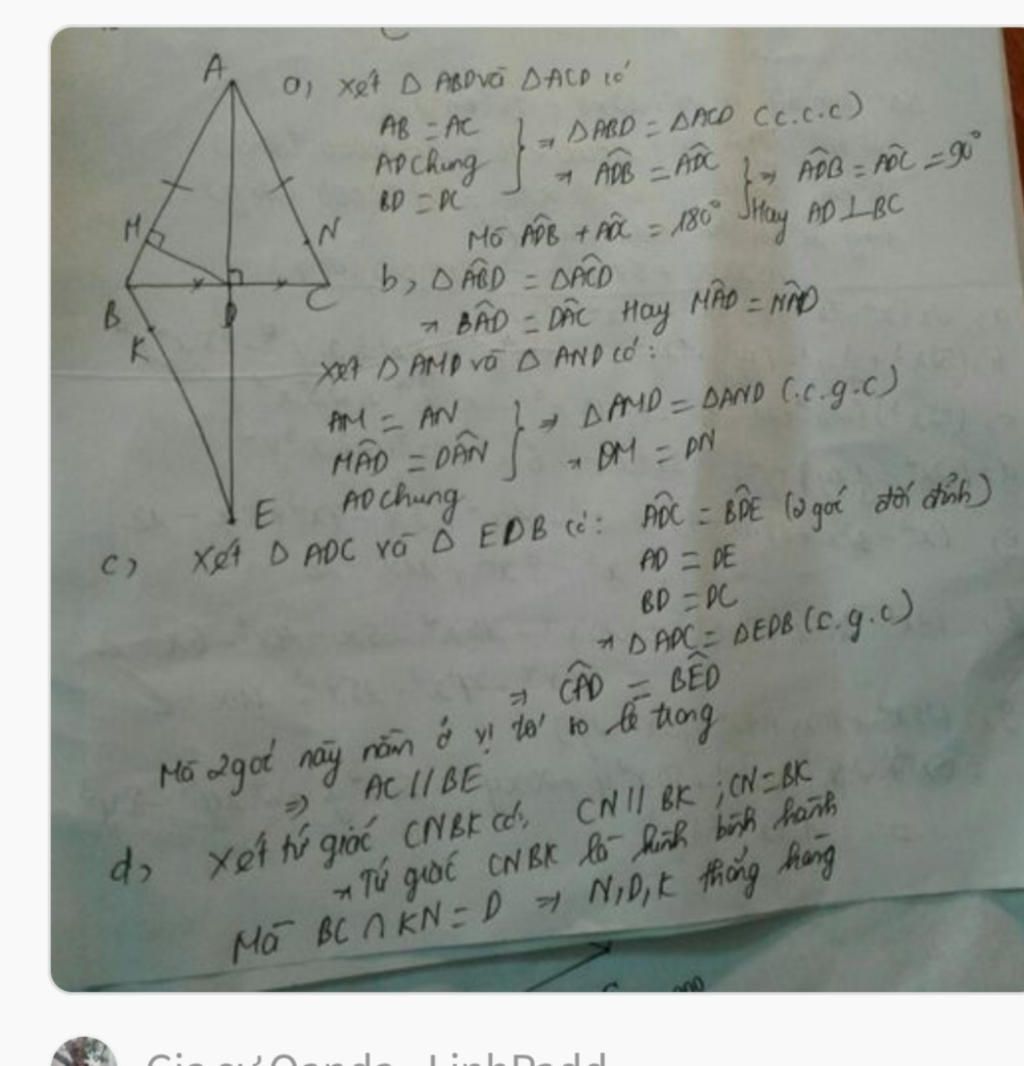 A
a) Xét Δ ABD và Δ ACD có
AB = AC
AD chung
BD = DC
⇒ ΔABD = ΔACD (c.c.c)
⇒ ADB̂ = ADĈ
Mà ADB̂ + ADĈ = 180°
⇒ ADB̂ = ADĈ = 90°
Hay AD ⊥ BC
M
N
B
D
C
K
E
b, Δ ABD = ΔACD
⇒ BÂD = DÂC Hay MÂD = NÂD
Xét Δ AMD và Δ AND có:
AM = AN
MÂD = DÂN
AD chung
⇒ ΔAMD = ΔAND (.c.g.c)
⇒ DM = DN
c) Xét Δ ADC và Δ EDB có: ADĈ = BD̂E (2 góc đối đỉnh)
AD = DE
BD = DC
⇒ Δ ADC = ΔEDB (c.g.c)
⇒ CÂD = BÊD
Mà 2 góc này nằm ở vị trí so le trong
⇒ AC // BE
d, Xét tứ giác CNBK có, CN // BK ; CN = BK
⇒ Tứ giác CNBK là hình bình hành
Mà BC ∩ KN = D ⇒ N,D,K thẳng hàng